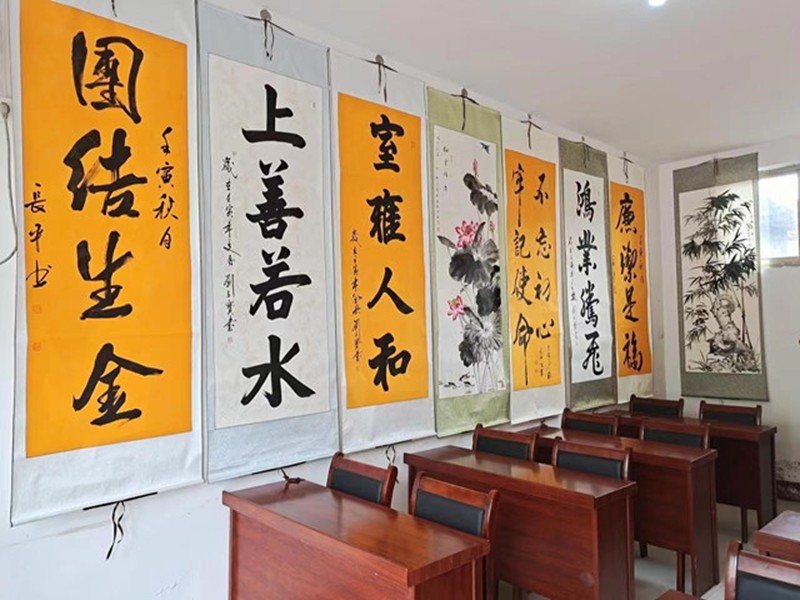 團结生金
壬寅秋月
長平书
上善若水
室雅人和
不忘初心
牢记使命
鴻業騰飛
廉潔是福